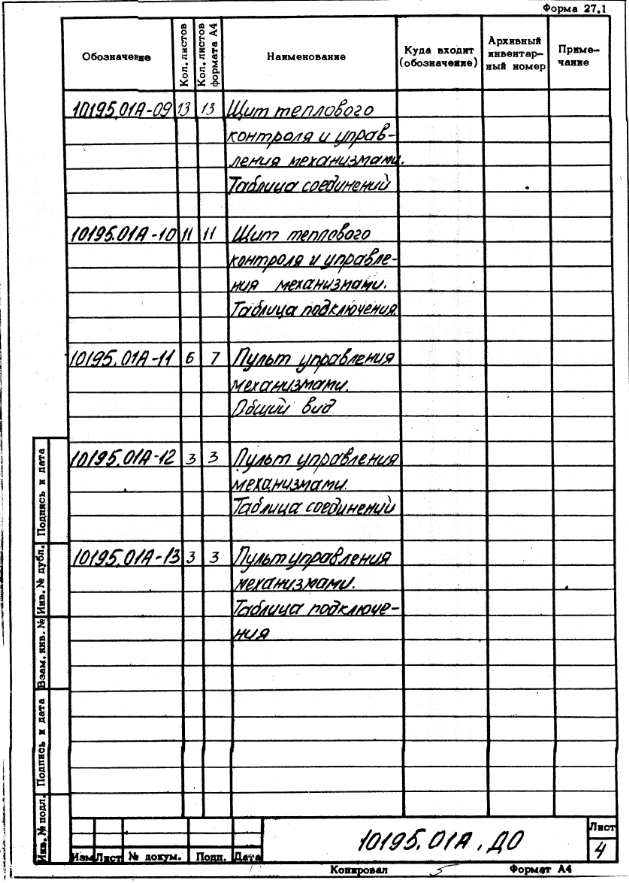 Форма 27.1
Обозначение Кол. листов Кол. листов формата А4 Наименование Куда входит (обозначение) Архивный инвентар-ный номер Приме-чание
10195.01А-09 13 13 Щит теплового
контроля и управ-
ления механизмами.
Таблица соединений
10195.01А-10 11 11 Щит теплового
контроля и управле-
ния механизмами.
Таблица подключения
10195.01А-11 6 7 Пульт управления
механизмами.
Общий вид
10195.01А-12 3 3 Пульт управления
механизмами.
Таблица соединений
10195.01А-13 3 3 Пульт управления
механизмами.
Таблица подключе-
ния
Подпись и дата
Инв. № дубл.
Взам. инв. №
Подпись и дата
Инв. № подл.
Изм Лист № докум. Подп. Дата
10195.01А.ДО
Лист
4
Копировал
Формат А4